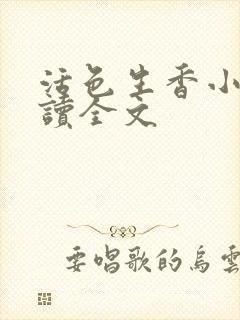 活色生香小
讀全文
要唱歌的烏雲